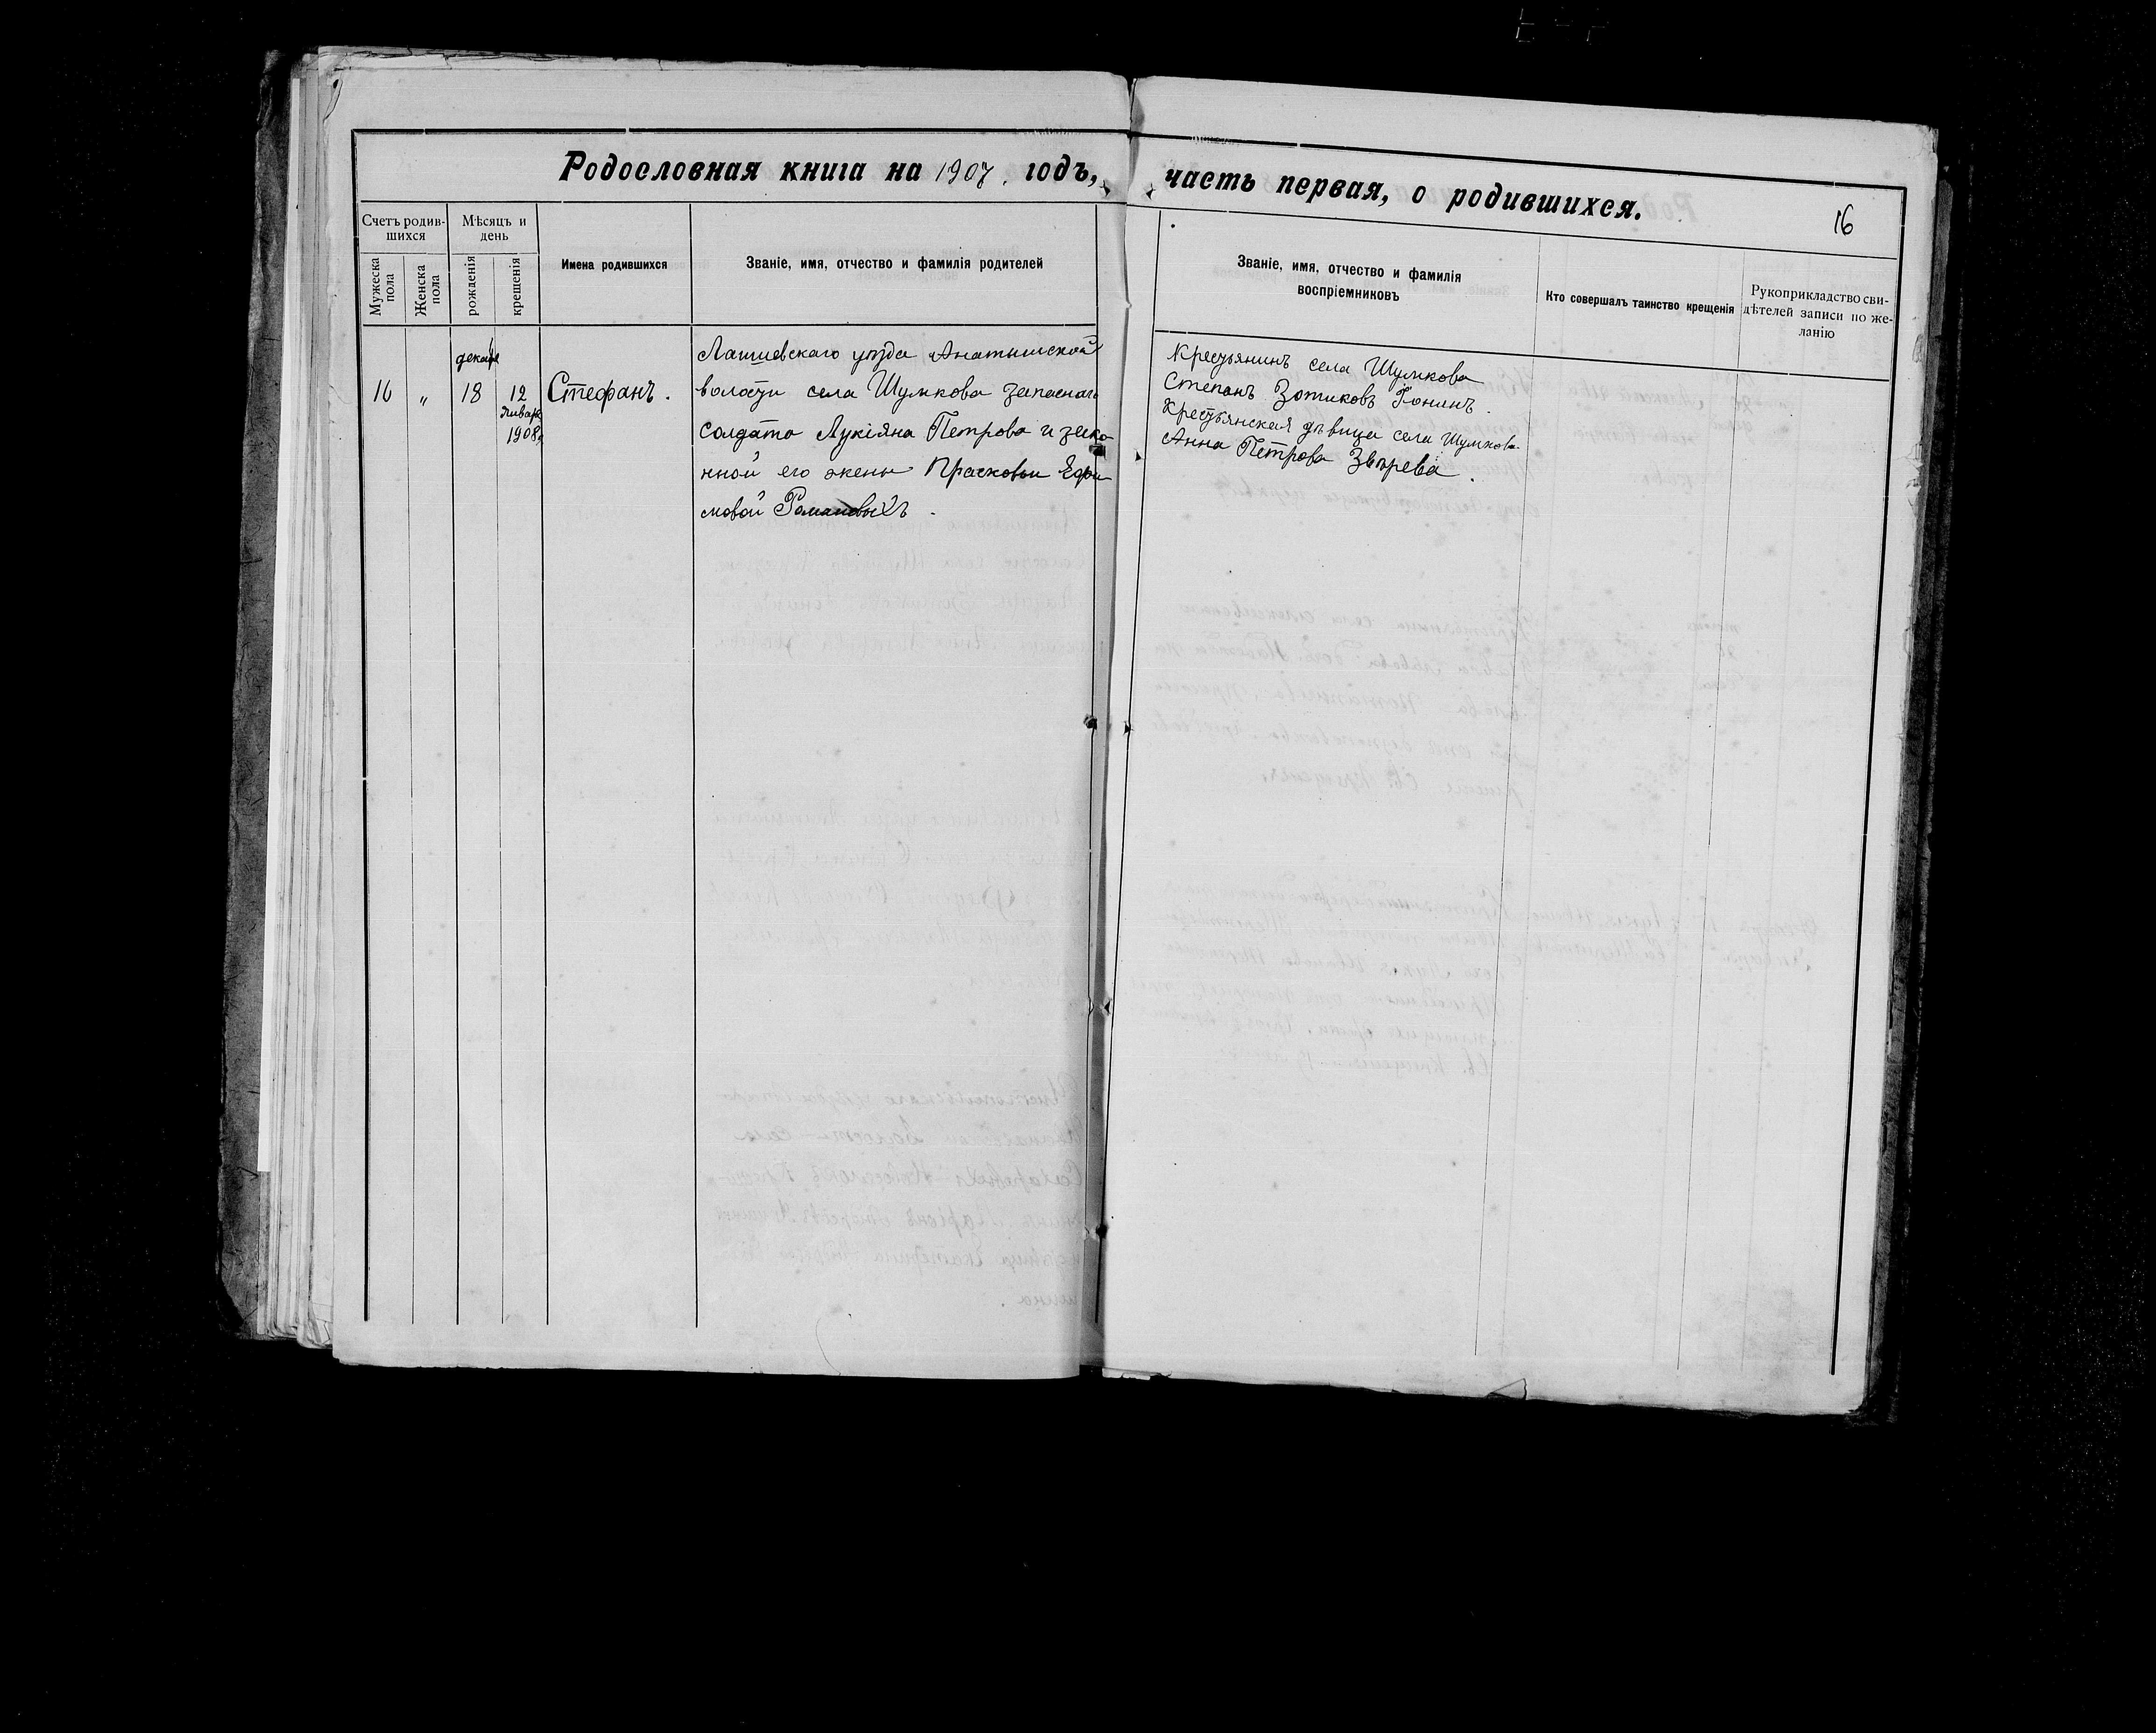 Родословная книга на 1907. годъ,
часть первая, о родившихся.
16
Счетъ родив-
шихся
Мѣсяцъ и
день
Мужеска
пола
Женска
пола
рожденія
крещенія
Имена родившихся
Званіе, имя, отчество и фамилія родителей
Званіе, имя, отчество и фамилія
воспріемниковъ
Кто совершалъ таинство крещенія
Рукоприкладство сви-
дѣтелей записи по же-
ланію
декабр
16 " 18 12 Стефанъ.
Январ
1908
Лаишевскаго уѣзда Анатышской
волости села Шумкова запаснаго
солдата Лукіяна Петрова и зако
нной его жены Прасковьи Ефи
мовой Романовыхъ.
Крестьянинъ села Шумкова
Степанъ Зотиковъ Гонинъ.
Крестьянская дѣвица села Шумкова
Анна Петрова Звѣрева.